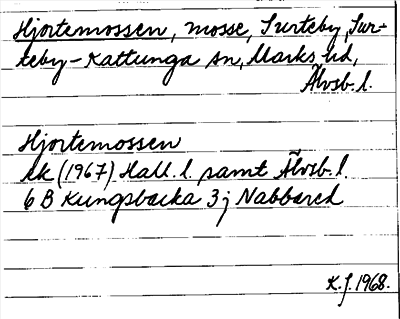 Hjortemossen, mosse, Surteby, Sur-
teby-Kattunga sn, Marks hd,
Älvsb. l.
Hjortemossen
Ek (1967) Hall. l. samt Älvsb. l
6 B Kungsbacka 3 j Nabbared
K.J. 1968.